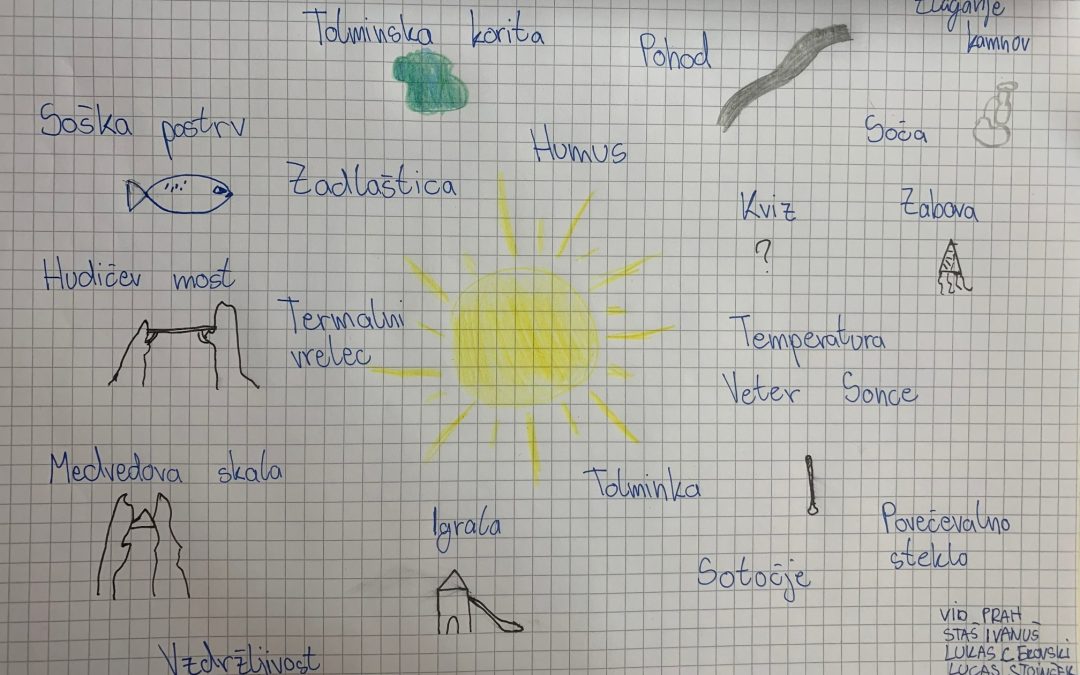 Zlaganje
kamnov
Tolminska korita
Pohod
Soča
Soška postrv
Humus
Zadlaščica
Kviz
?
Zabava
Hudičev most
Termalni
vrelec
Temperatura
Veter Sonce
Medvedova skala
Tolminka
Igrala
Povečevalno
steklo
Sotočje
Vzdržljivost
VID PRAH
STAŠ IVANUŠ
LUKAS CEKOVSKI
LUCAS STOINČEK